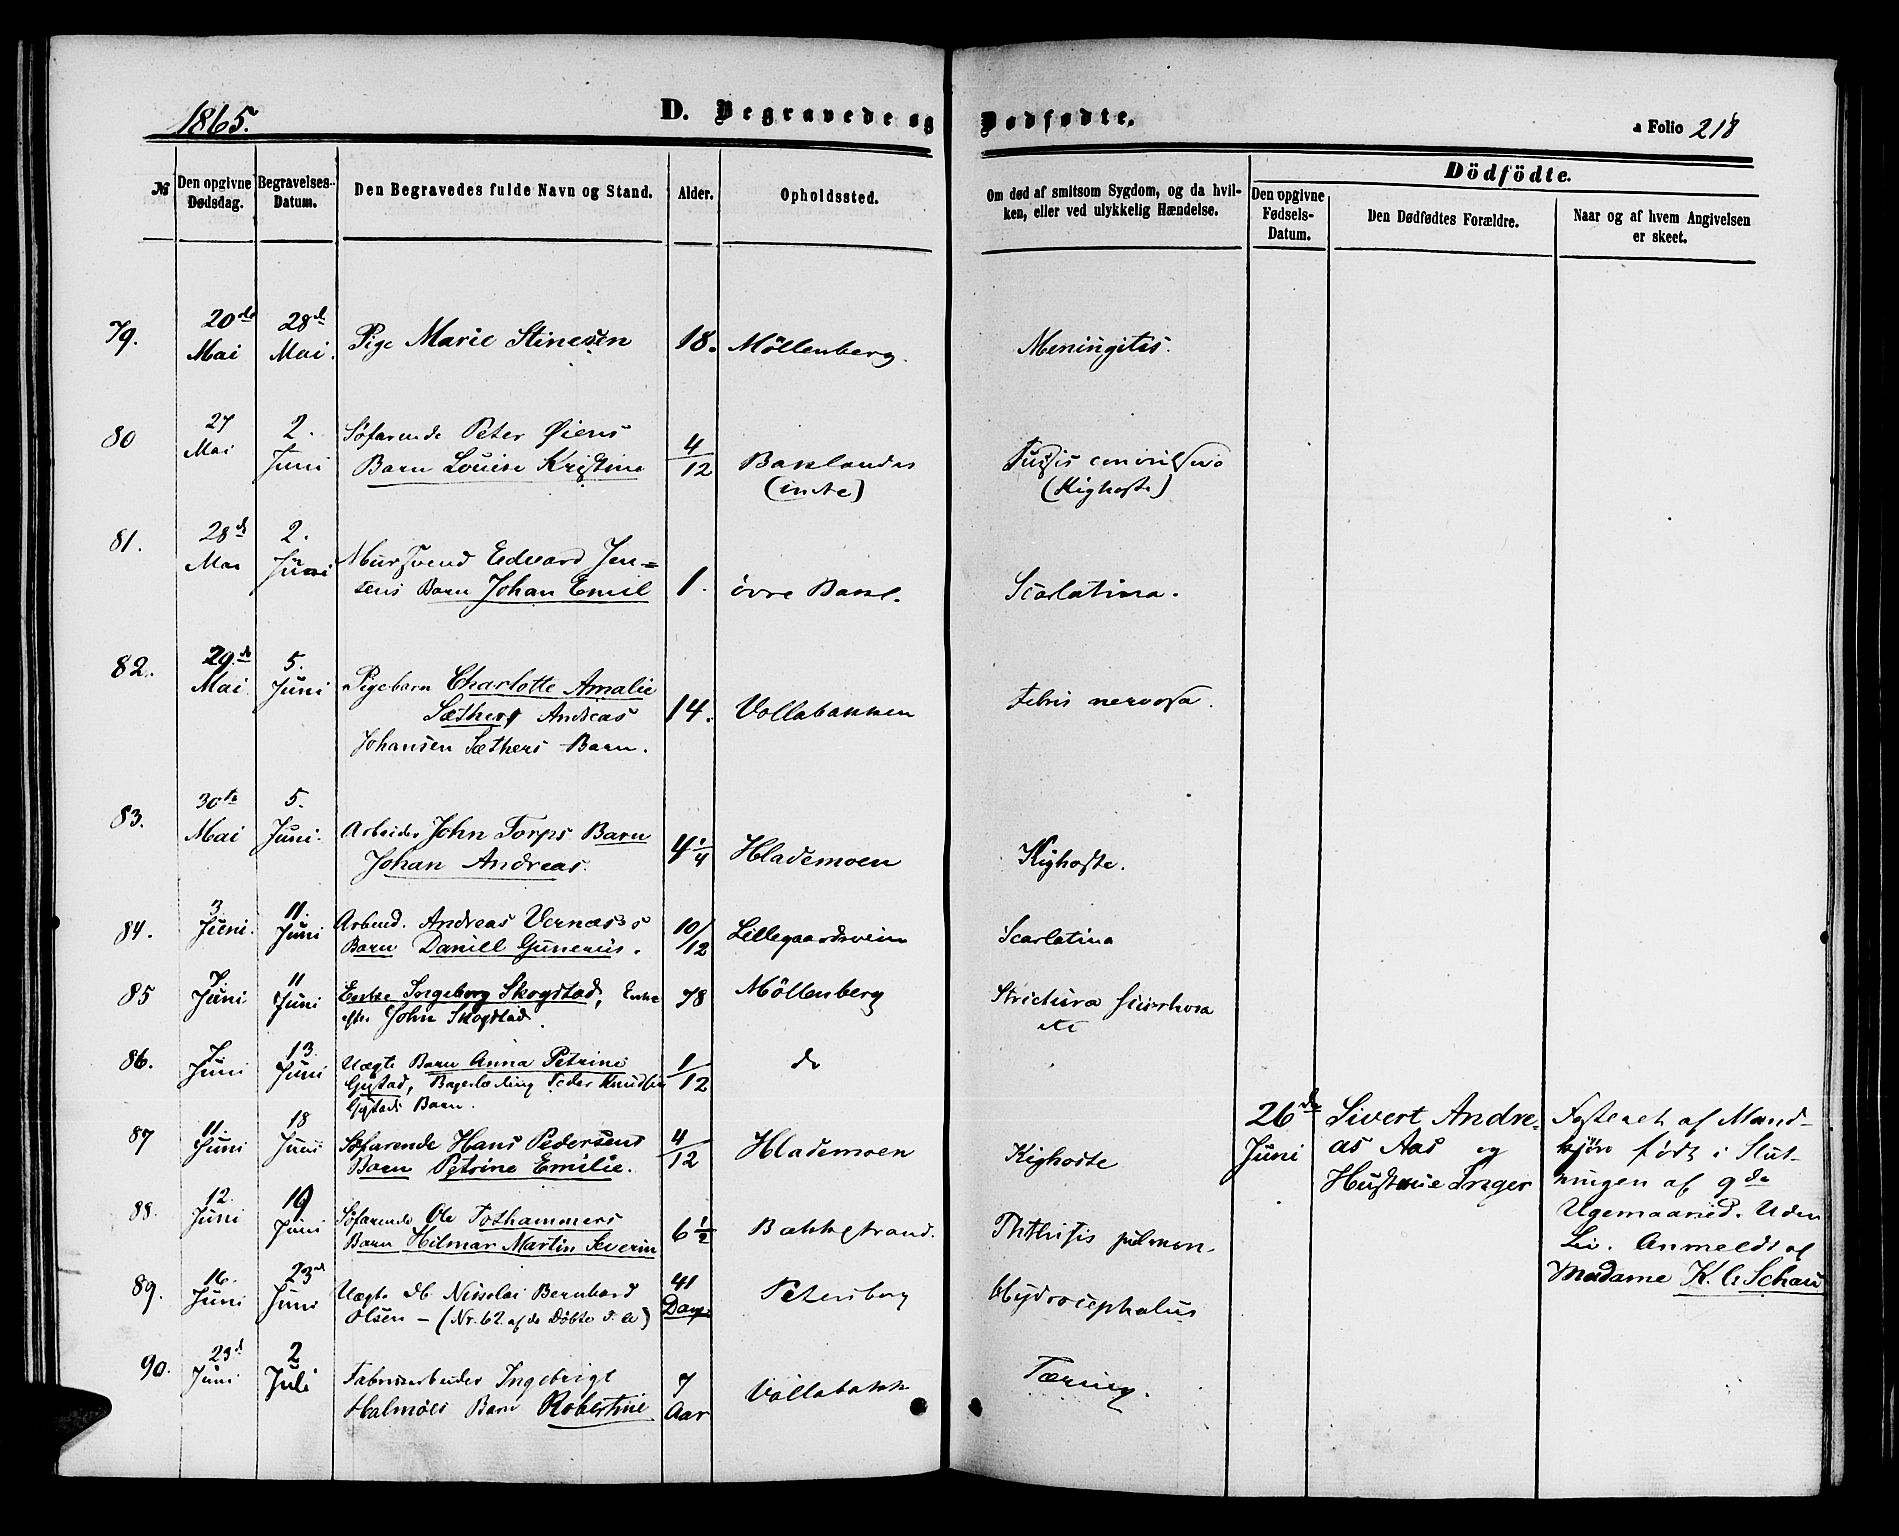 1865.
D. Begravede og Dødfødte.
a Folio 218
№
Den opgivne Dødsdag.
Begravelses-Datum.
Den Begravedes fulde Navn og Stand.
Alder.
Opholdssted.
Om død af smitsom Sygdom, og da hvil-
ken, eller ved ulykkelig Hændelse.
Dödfödte.
Den opgivne Fødsels-Datum.
Den Dødfødtes Forældre.
Naar og af hvem Angivelsen er skeet.
79. 20de Mai 28d Mai. Pige Marie Stinesen 18. Möllenberg. Meningitis.
80 27 Mai 2. Juni Søfarende Peter Øiens
Barn Louise Kristine 4/12 Baklandet
(indre)
Tussis convulsiva
(Kighoste)
81. 28d Mai 2. Juni Mursvend Edvard Jen=
sens Barn Johan Emil 1. övre Bakl. Scarlatina.
82. 29de Mai 5. Juni Pigebarn Charlotte Amalie
Sæther, Andreas
Johansen Sæthers Barn. 14. Vollabakken Febris nervosa.
83. 30te Mai 5. Juni. Arbeider John Torps Barn
Johan Andreas. 4 1/4 Hlademoen Kighoste.
84. 3 Juni. 11. Juni Arbeid. Andreas Vernæss
Barn Daniell Gunerius. 10/12 Lillegaardsveien Scarlatina
85 7. Juni 11 Juni Enke Ingeborg Skogstad, Enke
efter John Skogstad. 78 Möllenberg Strictura scirrhosa
86. 7 Juni 13. Juni Uægte Barn Anna Petrine
Gystad, Bagerlærling Peder Knudsen
Gystads Barn. 1/12 do
87 11. Juni 18 Juni Søfarende Hans Pedersens
Barn Petrine Emilie. 4/12 Hlademoen Kighoste
88. 12. Juni 19 Juni Søfarende Ole Fothammers
Barn Hilmar Martin Severin 6 1/2 Bakkestrand. Phthisis pulmon.
89. 16. Juni 23d Juni Uægte db. Nikolai Bernhard
Olsen – (Nr. 62 af de Døbte d. A.) 41 Dage Petersborg Hydrocephalus
90. 23d Juni 2 Juli Fabrikarbeider Ingebrigt
Halmøes Barn Robertine 7 Aar Vollabakk Tæring.
26de Juni
Sivert Andre=
as Aas og
Hustrue Inger
Fosteret af Mand-
kjøn født i Slut-
ningen af 9de
Ugemaaned. Uden
Liv. Anmeldt af
Madame K. C. Schau